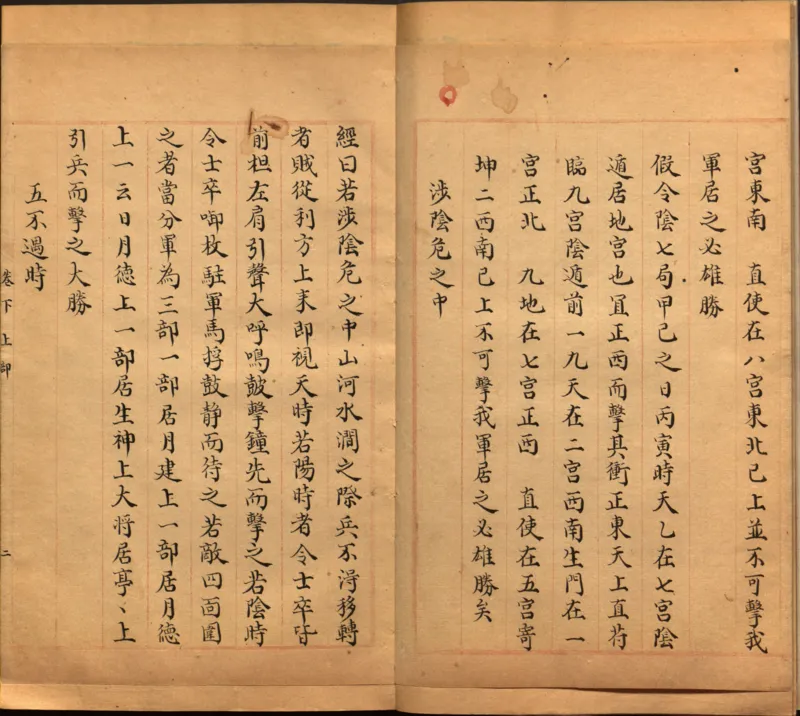 宮東南　直使在八宮東北已上並不可擊我
軍居之必雄勝
假令陰七局甲己之日丙寅時天乙在七宮陰
遁居地宮也宜正西而擊其衝正東天上直符
臨九宮陰遁前一九天在二宮西南生門在一
宮正北　九地在七宮正西　直使在五宮寄
坤二西南已上不可擊我軍居之必雄勝矣
涉陰危之中
經曰若涉陰危之中山河水澗之際兵不淂移轉
者賊從利方上来即視天時若陽時者令士卒
前袒左肩引聲大呼鳴鼓擊鐘先而擊之若陰時
令士卒啣枚駐軍馬捊鼓静而待之若敵四面圍
之者當分軍為三部一部居月建上一部居月德
上一云日月德上一部居生神上大将居亭丶上
引兵而擊之大勝
五不遇時
卷下上部
二